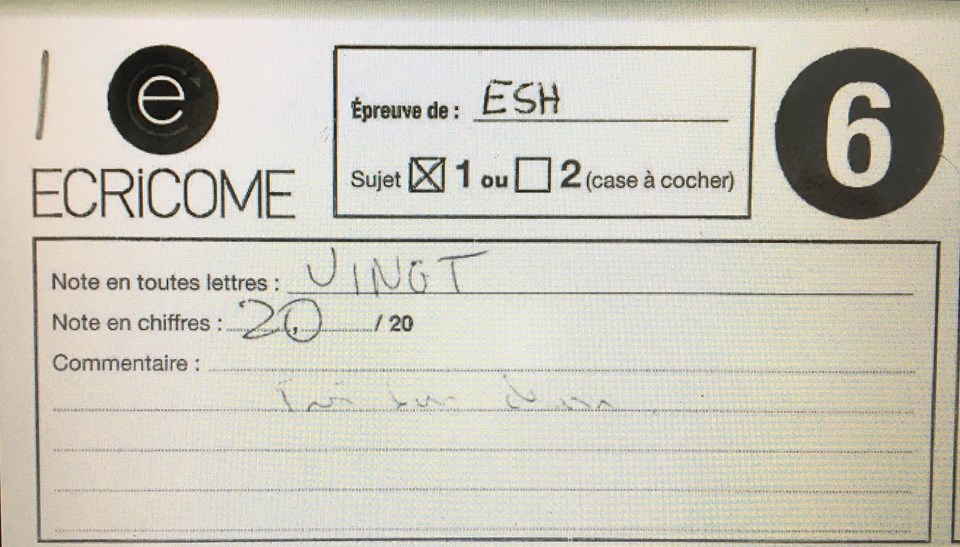 e
ECRiCOME
Épreuve de : ESH
Sujet ☒ 1 ou ☐ 2 (case à cocher)
6
Note en toutes lettres : VINGT
Note en chiffres : 20, / 20
Commentaire :